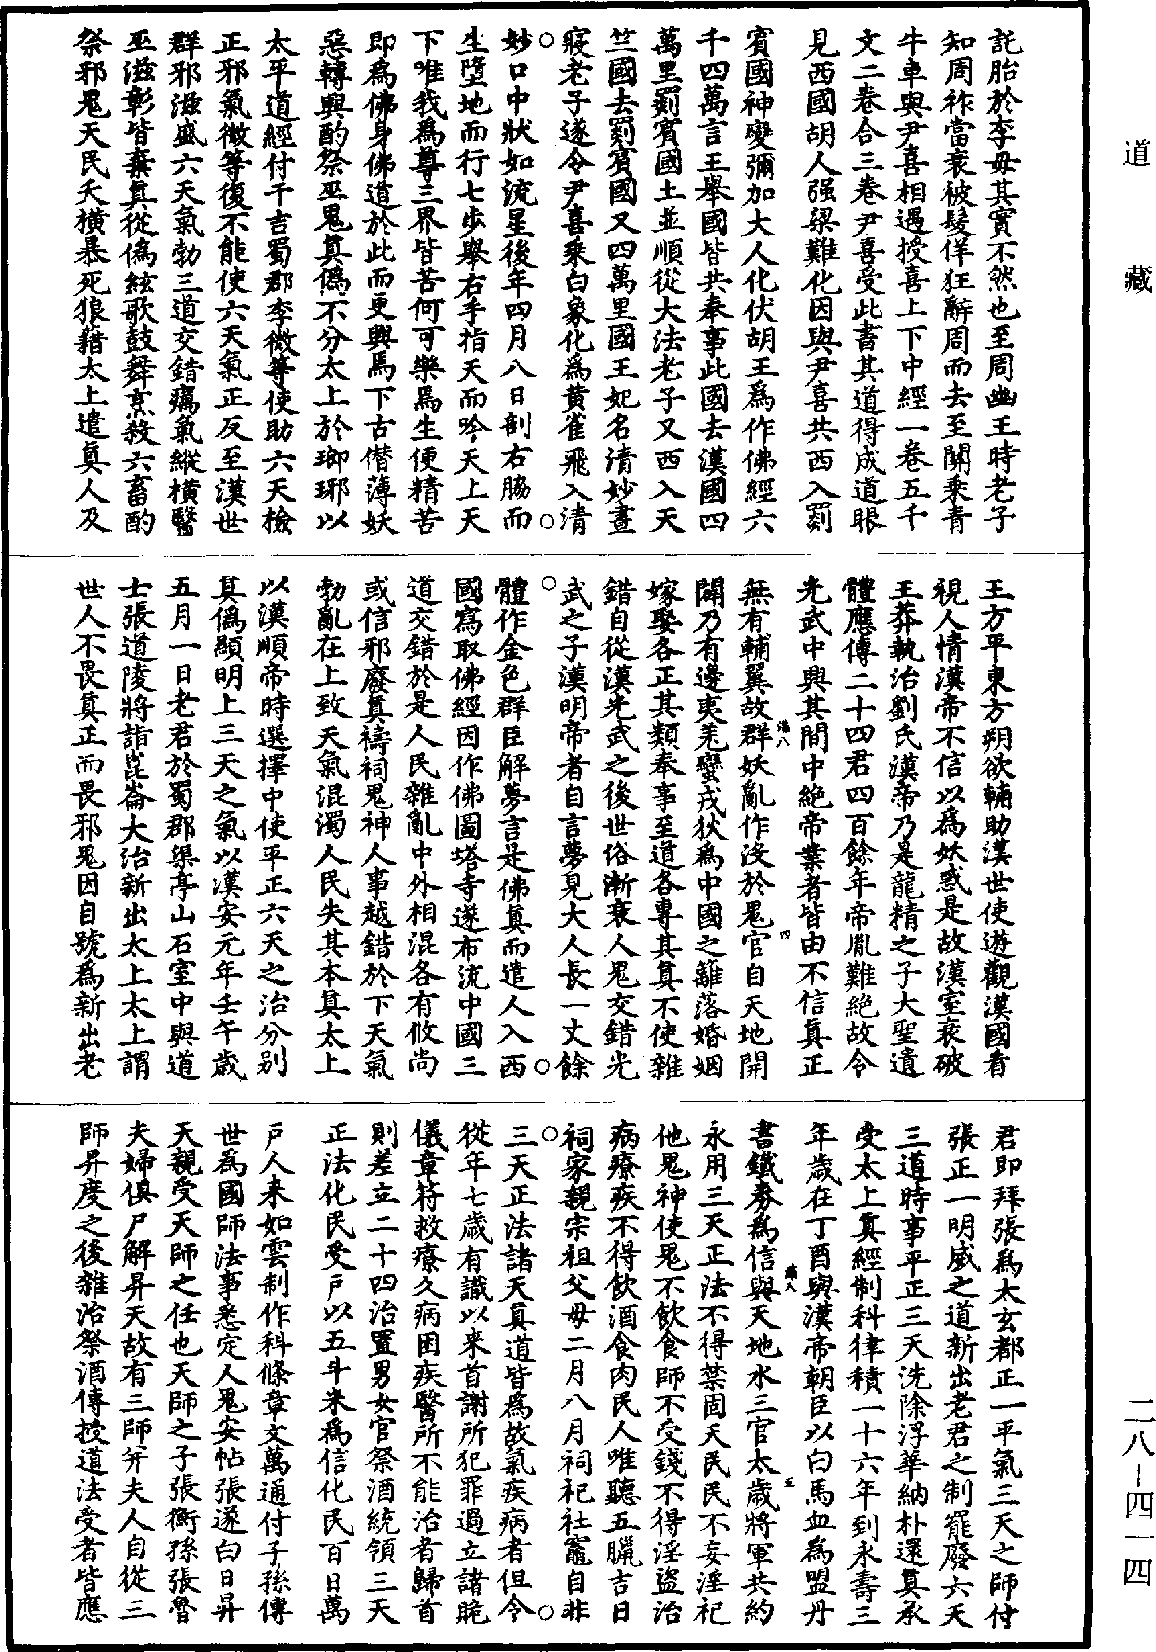 道藏
託胎於李母其實不然也至周幽王時老子
知周祚當衰被髮佯狂辭周而去至關乘青
牛車與尹喜相遇授喜上下中經一卷五千
文二卷合三卷尹喜受此書其道得成道眼
見西國胡人强梁難化因與尹喜共西入罽
賓國神變彌加大人化伏胡王爲作佛經六
千四萬言王舉國皆共奉事此國去漢國四
萬里罽賓國土並順從大法老子又西入天
竺國去罽賓國又四萬里國王妃名清妙晝
寢老子遂令尹喜乘白象化爲黃雀飛入清
妙口中狀如流星後年四月八日剖右脇而
生墮地而行七步舉右手指天而吟天上天
下唯我爲尊三界皆苦何可樂焉生便精苦
即爲佛身佛道於此而更興焉下古僭薄妖
惡轉興酌祭巫鬼真僞不分太上於瑯琊以
太平道經付干吉蜀郡李微等使助六天檢
正邪氣微等復不能使六天氣正反至漢世
群邪滋盛六天氣勃三道交錯癘氣縱橫醫
巫滋彰皆棄真從僞絃歌鼓舞烹殺六畜酌
祭邪鬼天民夭橫暴死狼藉太上遣真人及
王方平東方朔欲輔助漢世使遊觀漢國看
視人情漢帝不信以爲妖惑是故漢室衰破
王莽執治劉氏漢帝乃是龍精之子大聖遺
體應傳二十四君四百餘年帝胤難絕故令
光武中興其間中絕帝業者皆由不信真正
無有輔翼故群妖亂作沒於鬼官自天地開
闢乃有邊夷羌蠻戎狄爲中國之籬落婚姻
嫁娶各正其類奉事至道各專其真不使雜
錯自從漢光武之後世俗漸衰人鬼交錯光
武之子漢明帝者自言夢見大人長一丈餘
體作金色群臣解夢言是佛真而遣人入西
國寫取佛經因作佛圖塔寺遂布流中國三
道交錯於是人民雜亂中外相混各有攸尚
或信邪廢真禱祠鬼神人事越錯於下天氣
勃亂在上致天氣混濁人民失其本真太上
以漢順帝時選擇中使平正六天之治分别
真僞顯明上三天之氣以漢安元年壬午歲
五月一日老君於蜀郡渠亭山石室中與道
士張道陵將詣崑崙大治新出太上太上謂
世人不畏真正而畏邪鬼因自號爲新出老
君即拜張爲太玄都正一平氣三天之師付
張正一明威之道新出老君之制罷廢六天
三道時事平正三天洗除浮華納朴還真承
受太上真經制科律積一十六年到永壽三
年歲在丁酉與漢帝朝臣以白馬血爲盟丹
書鐵券爲信與天地水三官太歲將軍共約
永用三天正法不得禁固天民民不妄淫祀
他鬼神使鬼不飲食師不受錢不得淫盜治
病療疾不得飲酒食肉民人唯聽五臘吉日
祠家親宗祖父母二月八月祠祀社竈自非
三天正法諸天真道皆爲故氣疾病者但令
從年七歲有識以來首謝所犯罪過立諸䀢
儀章符救療久病困疾醫所不能治者歸首
則差立二十四治置男女官祭酒統領三天
正法化民受戶以五斗米爲信化民百日萬
戶人來如雲制作科條章文萬通付子孫傳
世爲國師法事悉定人鬼安帖張遂白日昇
天親受天師之任也天師之子張衡孫張魯
夫婦俱尸解昇天故有三師并夫人自從三
師昇度之後雜治祭酒傳授道法受者皆應
二八-四一四